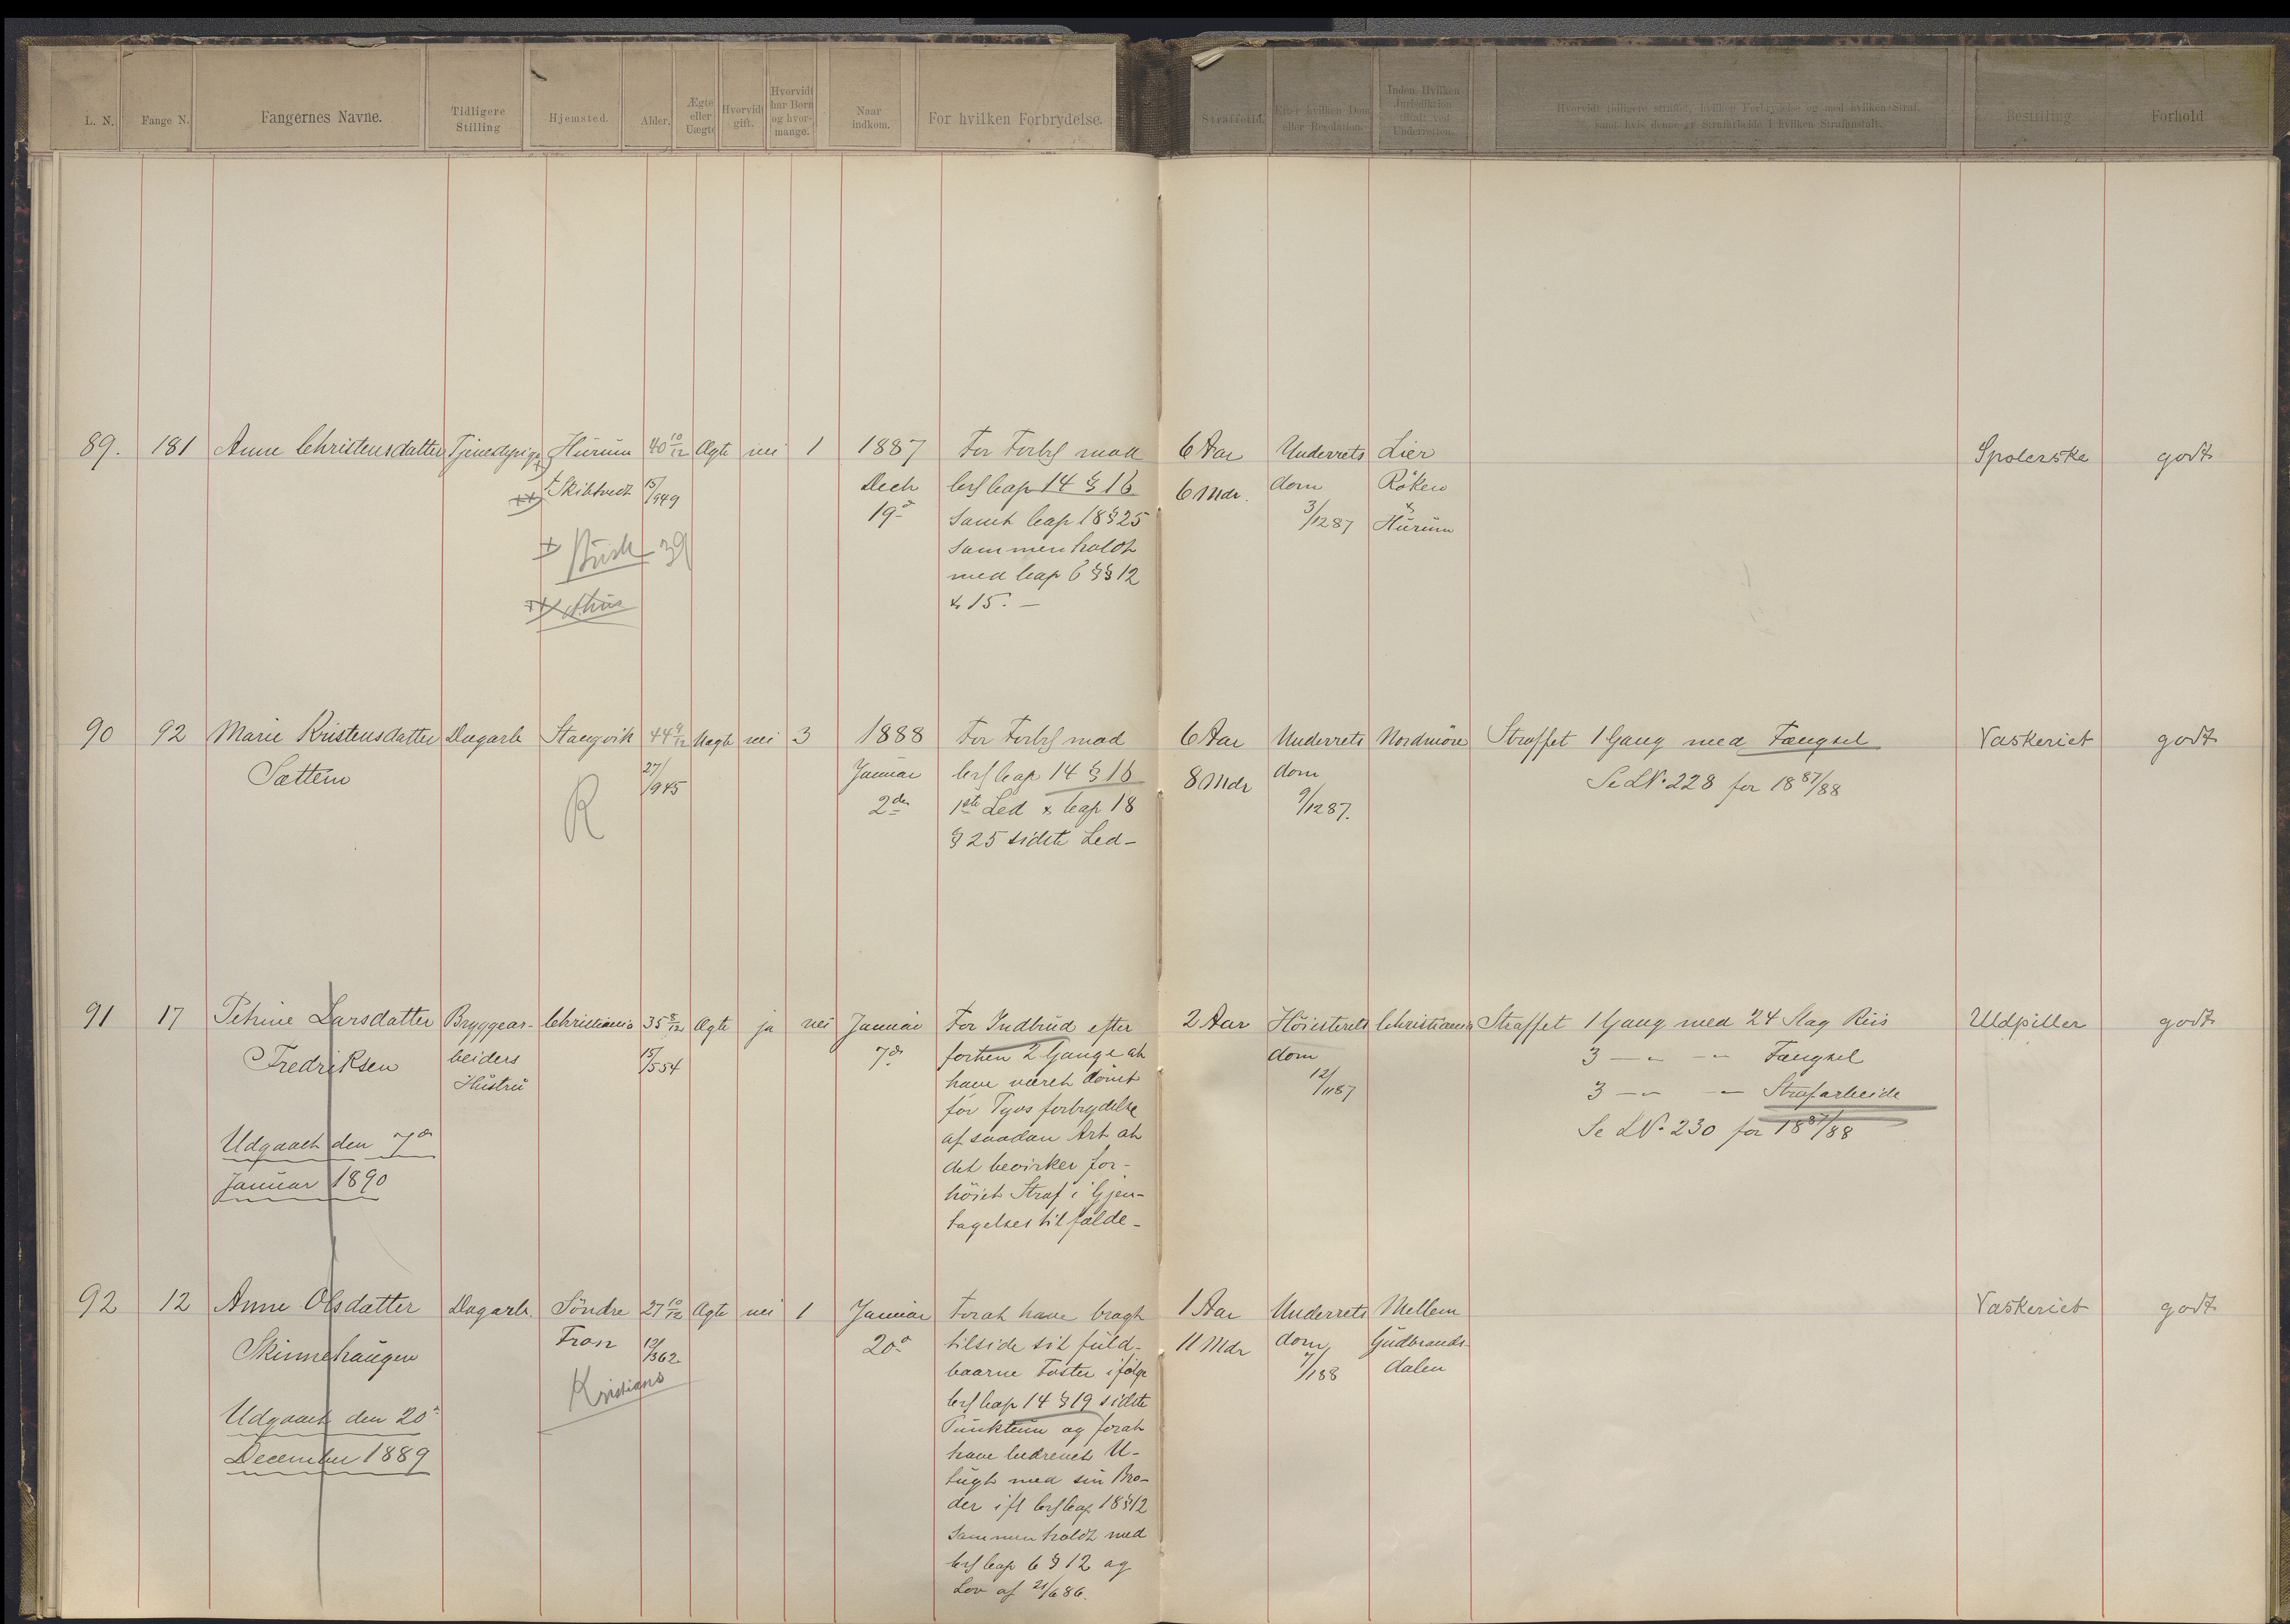 L. N. Fange N. Fangernes Navne. Tidligere Stilling Hjemsted. Alder. Ægte eller Uægte Hvorvidt gift. Hvorvidt har Børn og hvor- mange. Naar indkom. For hvilken Forbrydelse. Straffetid. Efter hvilken Dom eller Resolution. Inden Hvilken Jurisdiktion tiltalt ved Underretten. Hvorvidt tidligere straffet, hvilken Forbrydelse og med hvilken Straf, samt hvis denne er Strafarbeide i hvilken Strafanstalt. Bestilling Forhold
89. 181 Anne Christensdatter Tjenestepige Hurum 40 10/12 Ægte nei 1 1887 For Forbr mod 6 Aar Underrets Lier Spolerske godt
Skibtvedt 15/949 Decb Crl Cap 14 § 16 6 Mdr. dom Röken
19d samt Cap 18 § 25 3/12 87 & Hurum
Busk 39 sammenholdt
med Cap 6 §§ 12
Ahus & 15. —
90 92 Marie Kristensdatter Dagarb Stangvik 44 9/12 Uægte nei 3 1888 For Forbr mod 6 Aar Underrets Nordmöre Straffet 1 Gang med Fængsel Vaskeriet godt
Sættem 27/945 Januar Crl Cap 14 § 16 8 Mdr dom Se LN. 228 for 18 87/88
R 2den 1ste Led & Cap 18 9/12 87.
§ 25 sidste Led —
91 17 Petrine Larsdatter Bryggear- Christiania 35 8/12 Ægte ja nei Januar For Indbrud efter 2 Aar Höiesterets Christiania Straffet 1 Gang med 24 Slag Riis Uldpiller godt
Fredriksen beiders 15/554 7d forhen 2 Gange at dom 3 — " — " — Fængsel
Hustru have været dömt 12/1187 3 — " — Strafarbeide
for Tyvsforbrydelse Se LN. 230 for 18 87/88
Udgaaet den 7d af saadan Art at
Januar 1890 det bevirker for-
höiet Straf i Gjen-
tagelsestilfælde —
92 12 Anne Olsdatter Dagarb. Söndre 27 10/12 Ægte nei 1 Januar Forat have bragt 1 Aar Underrets Mellem Vaskeriet godt
Skinnehaugen Fron 12/362 20d tilside sit fuld- 11 Mdr dom Gudbrands-
Kristians baarne Foster ifölge 7/188 dalen
Udgaaet den 20d Crl Cap 14 § 19 sidste
December 1889 Punktum og forat
have bedrevet U-
tugt med sin Bro-
der ifl Crl Cap 18 § 12
sammenholdt med
Crl Cap 6 § 12 og
Lov af 21/6 86.